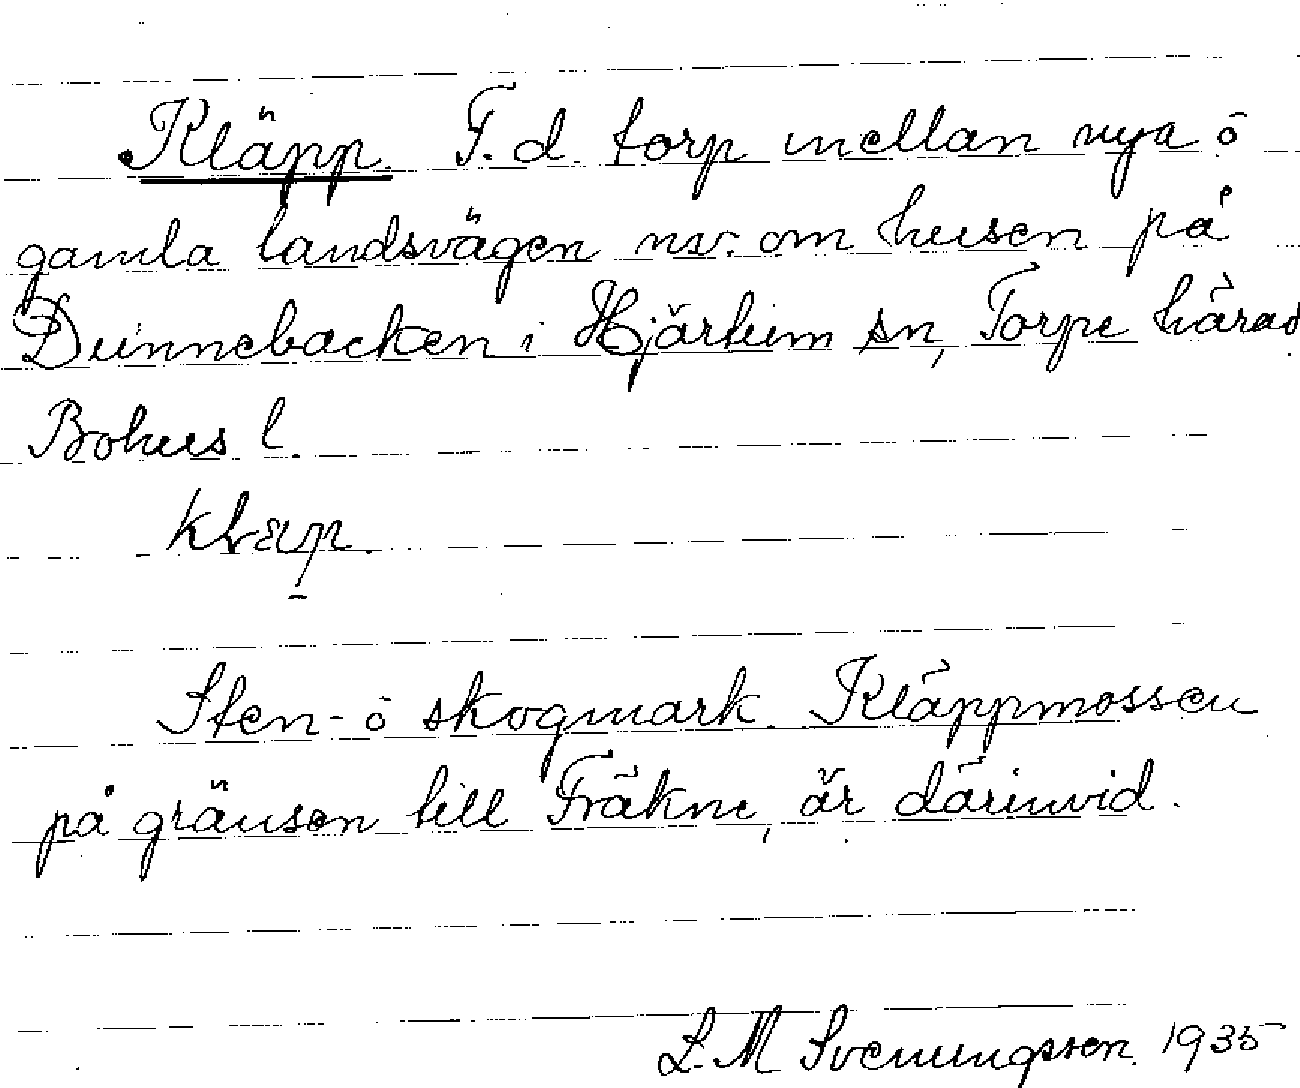 Kläpp. F.d. torp mellan nya o
gamla landsvägen nv. om husen på
Dunnebacken i Hjärtum sn, Torpe härad
Bohus l.
Sten- o skogmark. Kläppmossen
på gränsen till Fräkne, är därinvid.
L. M Svenungsson. 1935